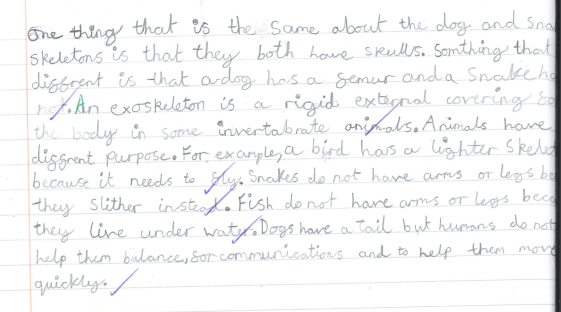 One thing that is the same about the dog and sna
skeletons is that they both have skulls. Somthing that
diffrent is that a dog has a femur and a snake ha
not. An exoskeleton is a rigid external covering fo
the body in some invertabrate animals. Animals have
diffrent purpose. For example, a bird has a lighter skelet
because it needs to fly. Snakes do not have arms or legs be
they slither instead. Fish do not have arms or legs beca
they live under water. Dogs have a tail but humans do not
help them balance, for communications and to help them move
quickly.